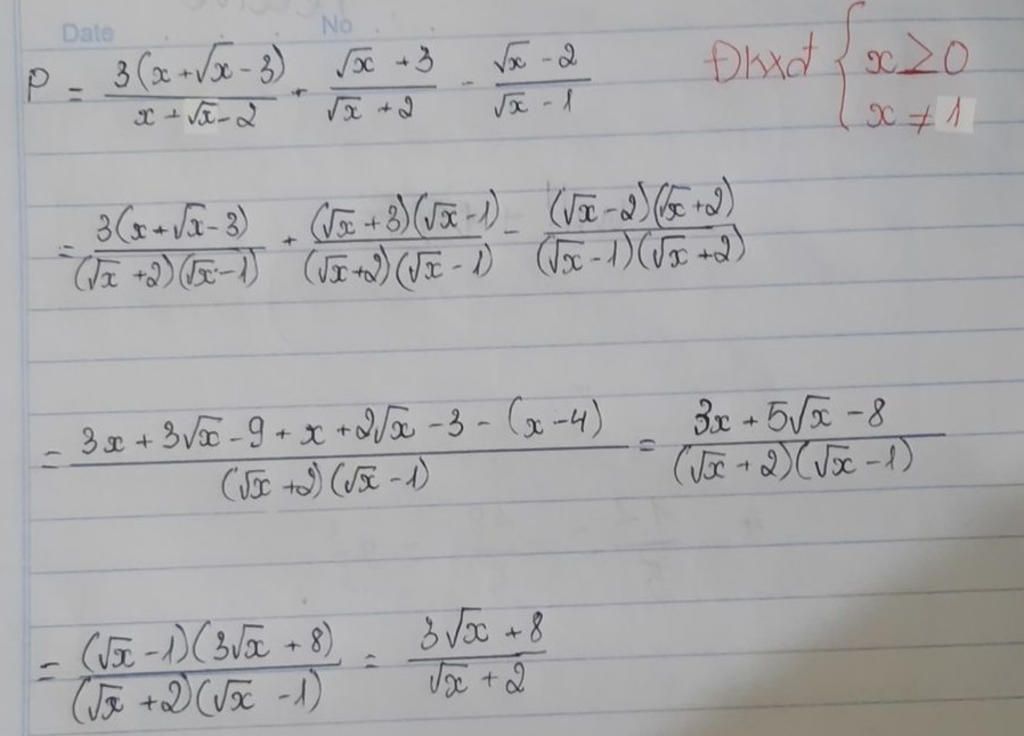 Date No
P = \frac{3(x+\sqrt{x}-3)}{x+\sqrt{x}-2} + \frac{\sqrt{x}+3}{\sqrt{x}+2} - \frac{\sqrt{x}-2}{\sqrt{x}-1} Đkxđ \begin{cases} x \ge 0 \\ x \ne 1 \end{cases}
= \frac{3(x+\sqrt{x}-3)}{(\sqrt{x}+2)(\sqrt{x}-1)} + \frac{(\sqrt{x}+3)(\sqrt{x}-1)}{(\sqrt{x}+2)(\sqrt{x}-1)} - \frac{(\sqrt{x}-2)(\sqrt{x}+2)}{(\sqrt{x}-1)(\sqrt{x}+2)}
= \frac{3x+3\sqrt{x}-9+x+2\sqrt{x}-3-(x-4)}{(\sqrt{x}+2)(\sqrt{x}-1)} = \frac{3x+5\sqrt{x}-8}{(\sqrt{x}+2)(\sqrt{x}-1)}
= \frac{(\sqrt{x}-1)(3\sqrt{x}+8)}{(\sqrt{x}+2)(\sqrt{x}-1)} = \frac{3\sqrt{x}+8}{\sqrt{x}+2}